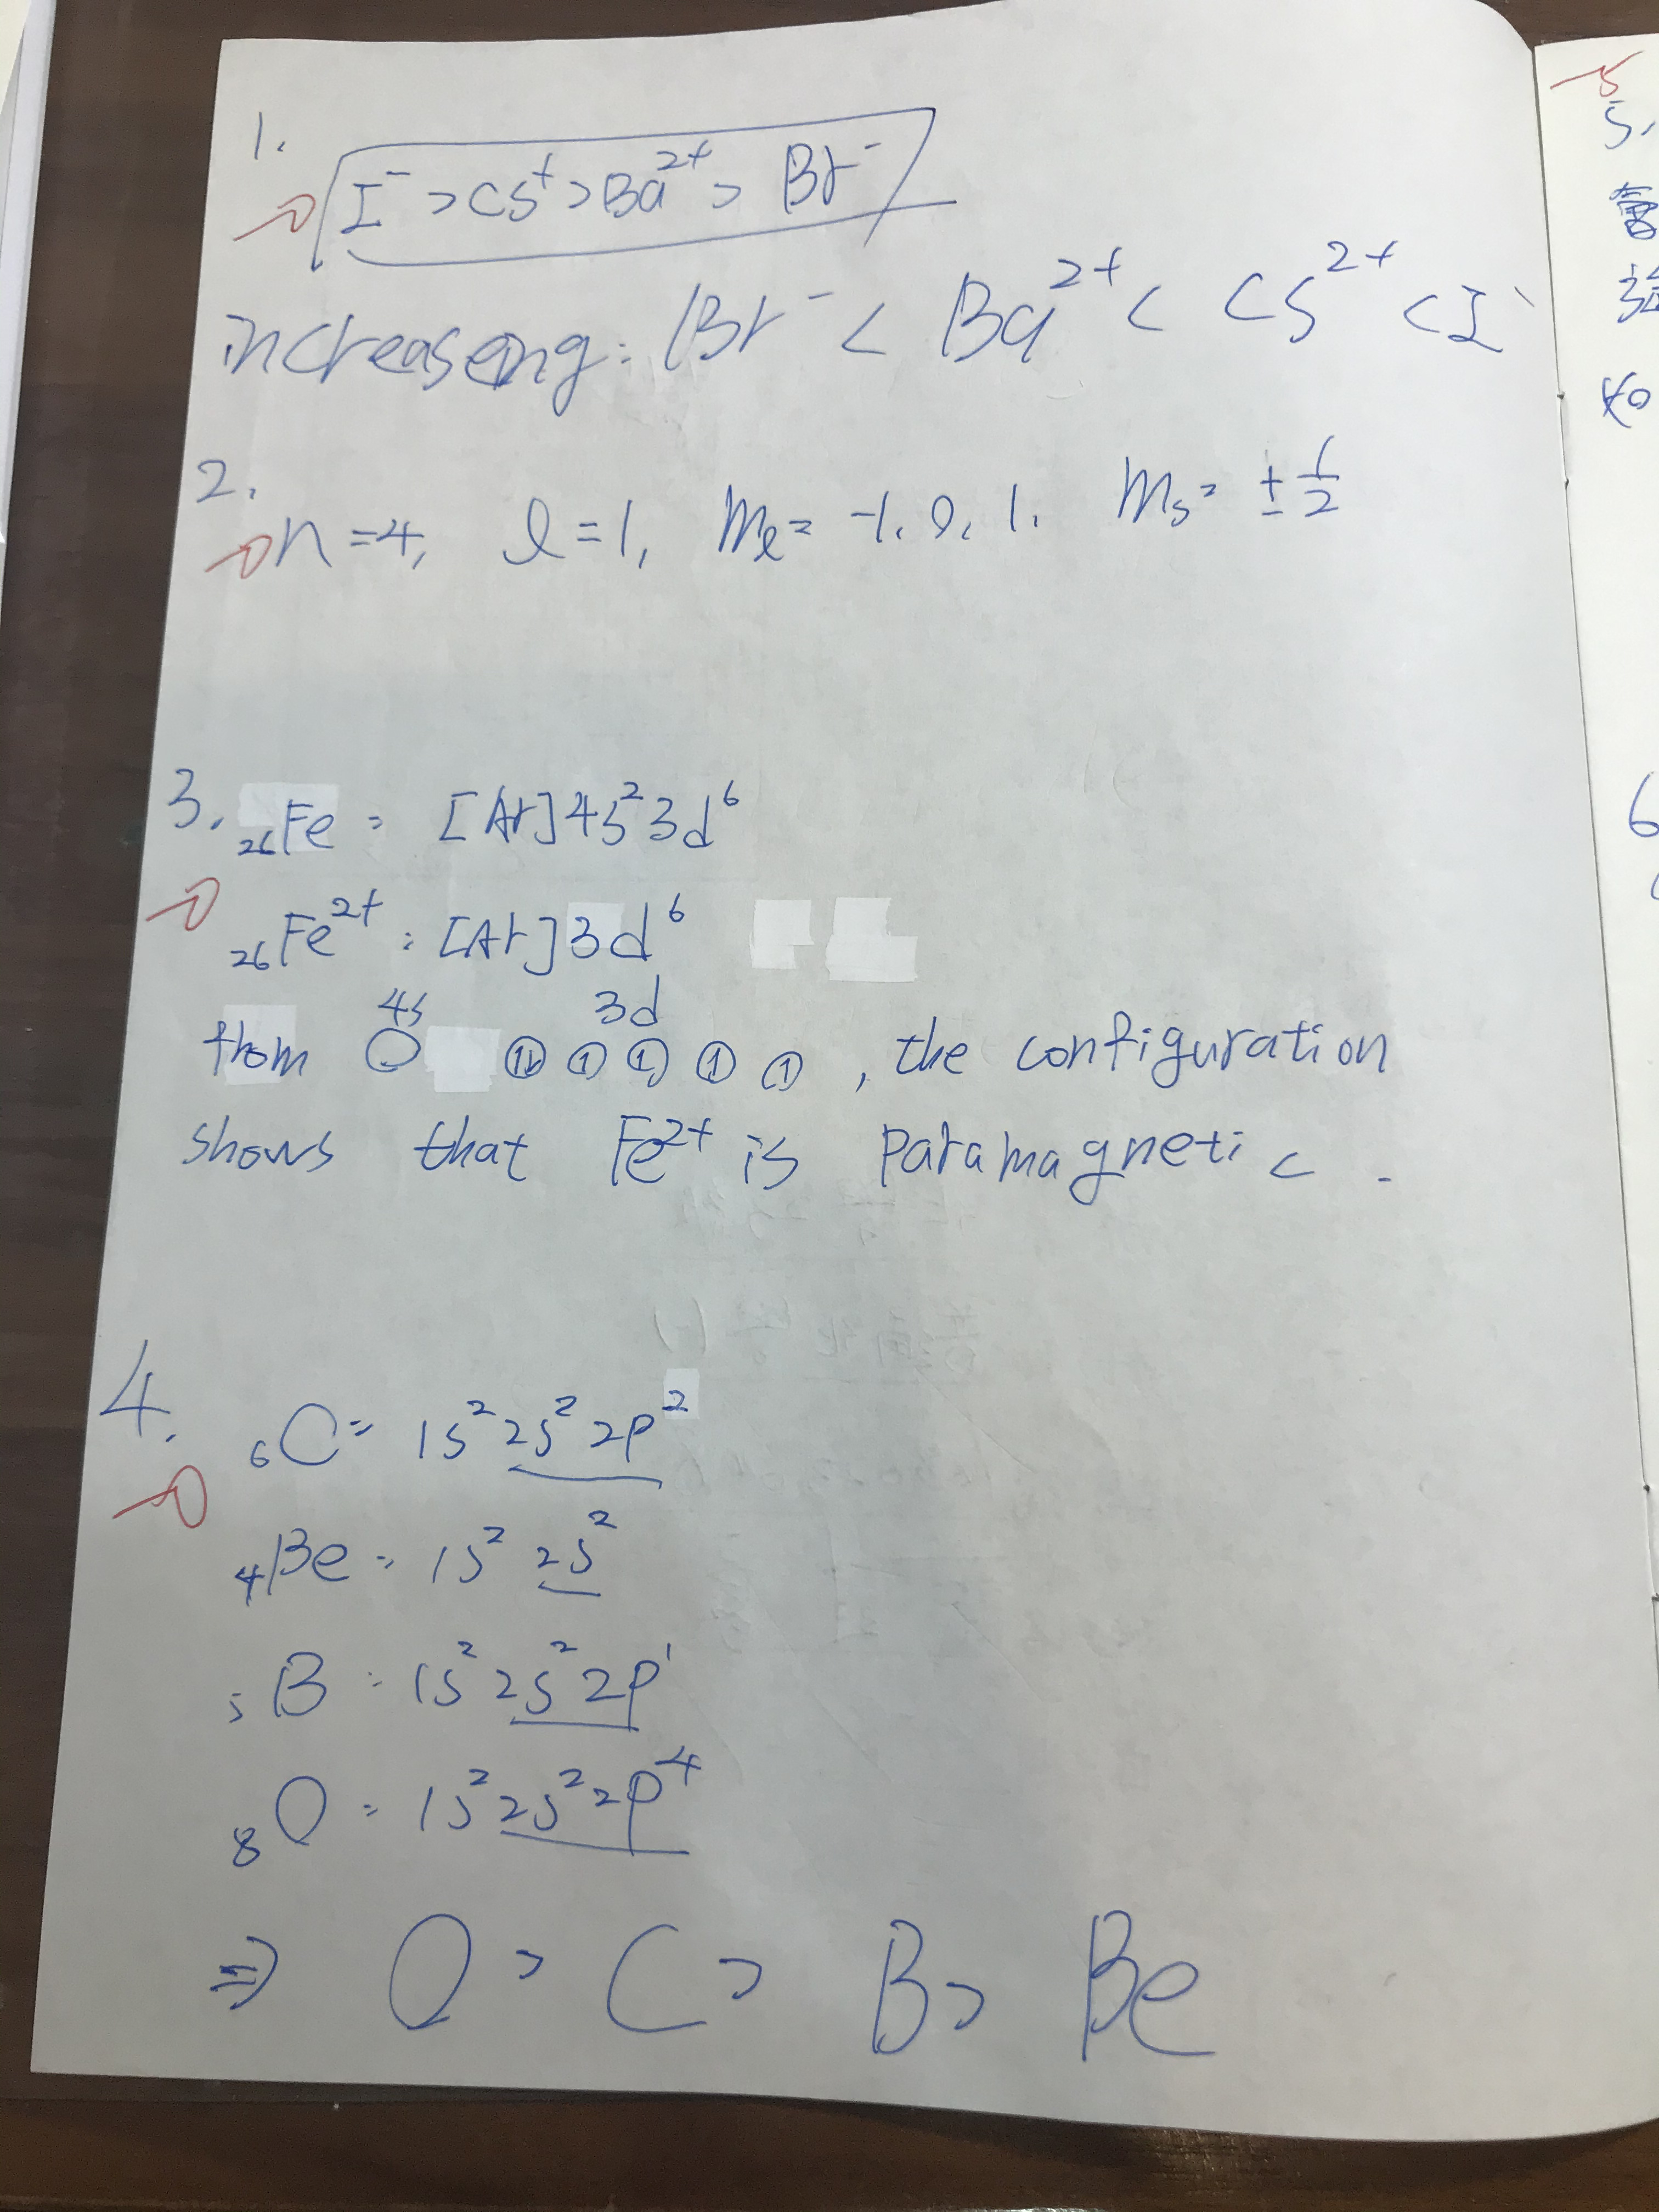 1.
I⁻ > Cs⁺ > Ba²⁺ > Br⁻
increaseng: Br⁻ < Ba²⁺ < Cs²⁺ < I⁻
2.
n = 4, l = 1, mₗ = -1, 0, 1. mₛ = ± 1/2
3. ₂₆Fe : [Ar]4s²3d⁶
₂₆Fe²⁺ : [Ar]3d⁶
4s 3d
from , the configuration
shows that Fe²⁺ is paramagnetic.
4.
₆C = 1s²2s²2p²
₄Be = 1s² 2s²
₅B : 1s²2s²2p¹
₈O = 1s²2s²2p⁴
⇒ O > C > B > Be
5.
6